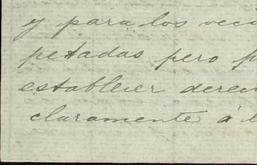 y para los veci
petadas pero p
establecer derec
claramente á l